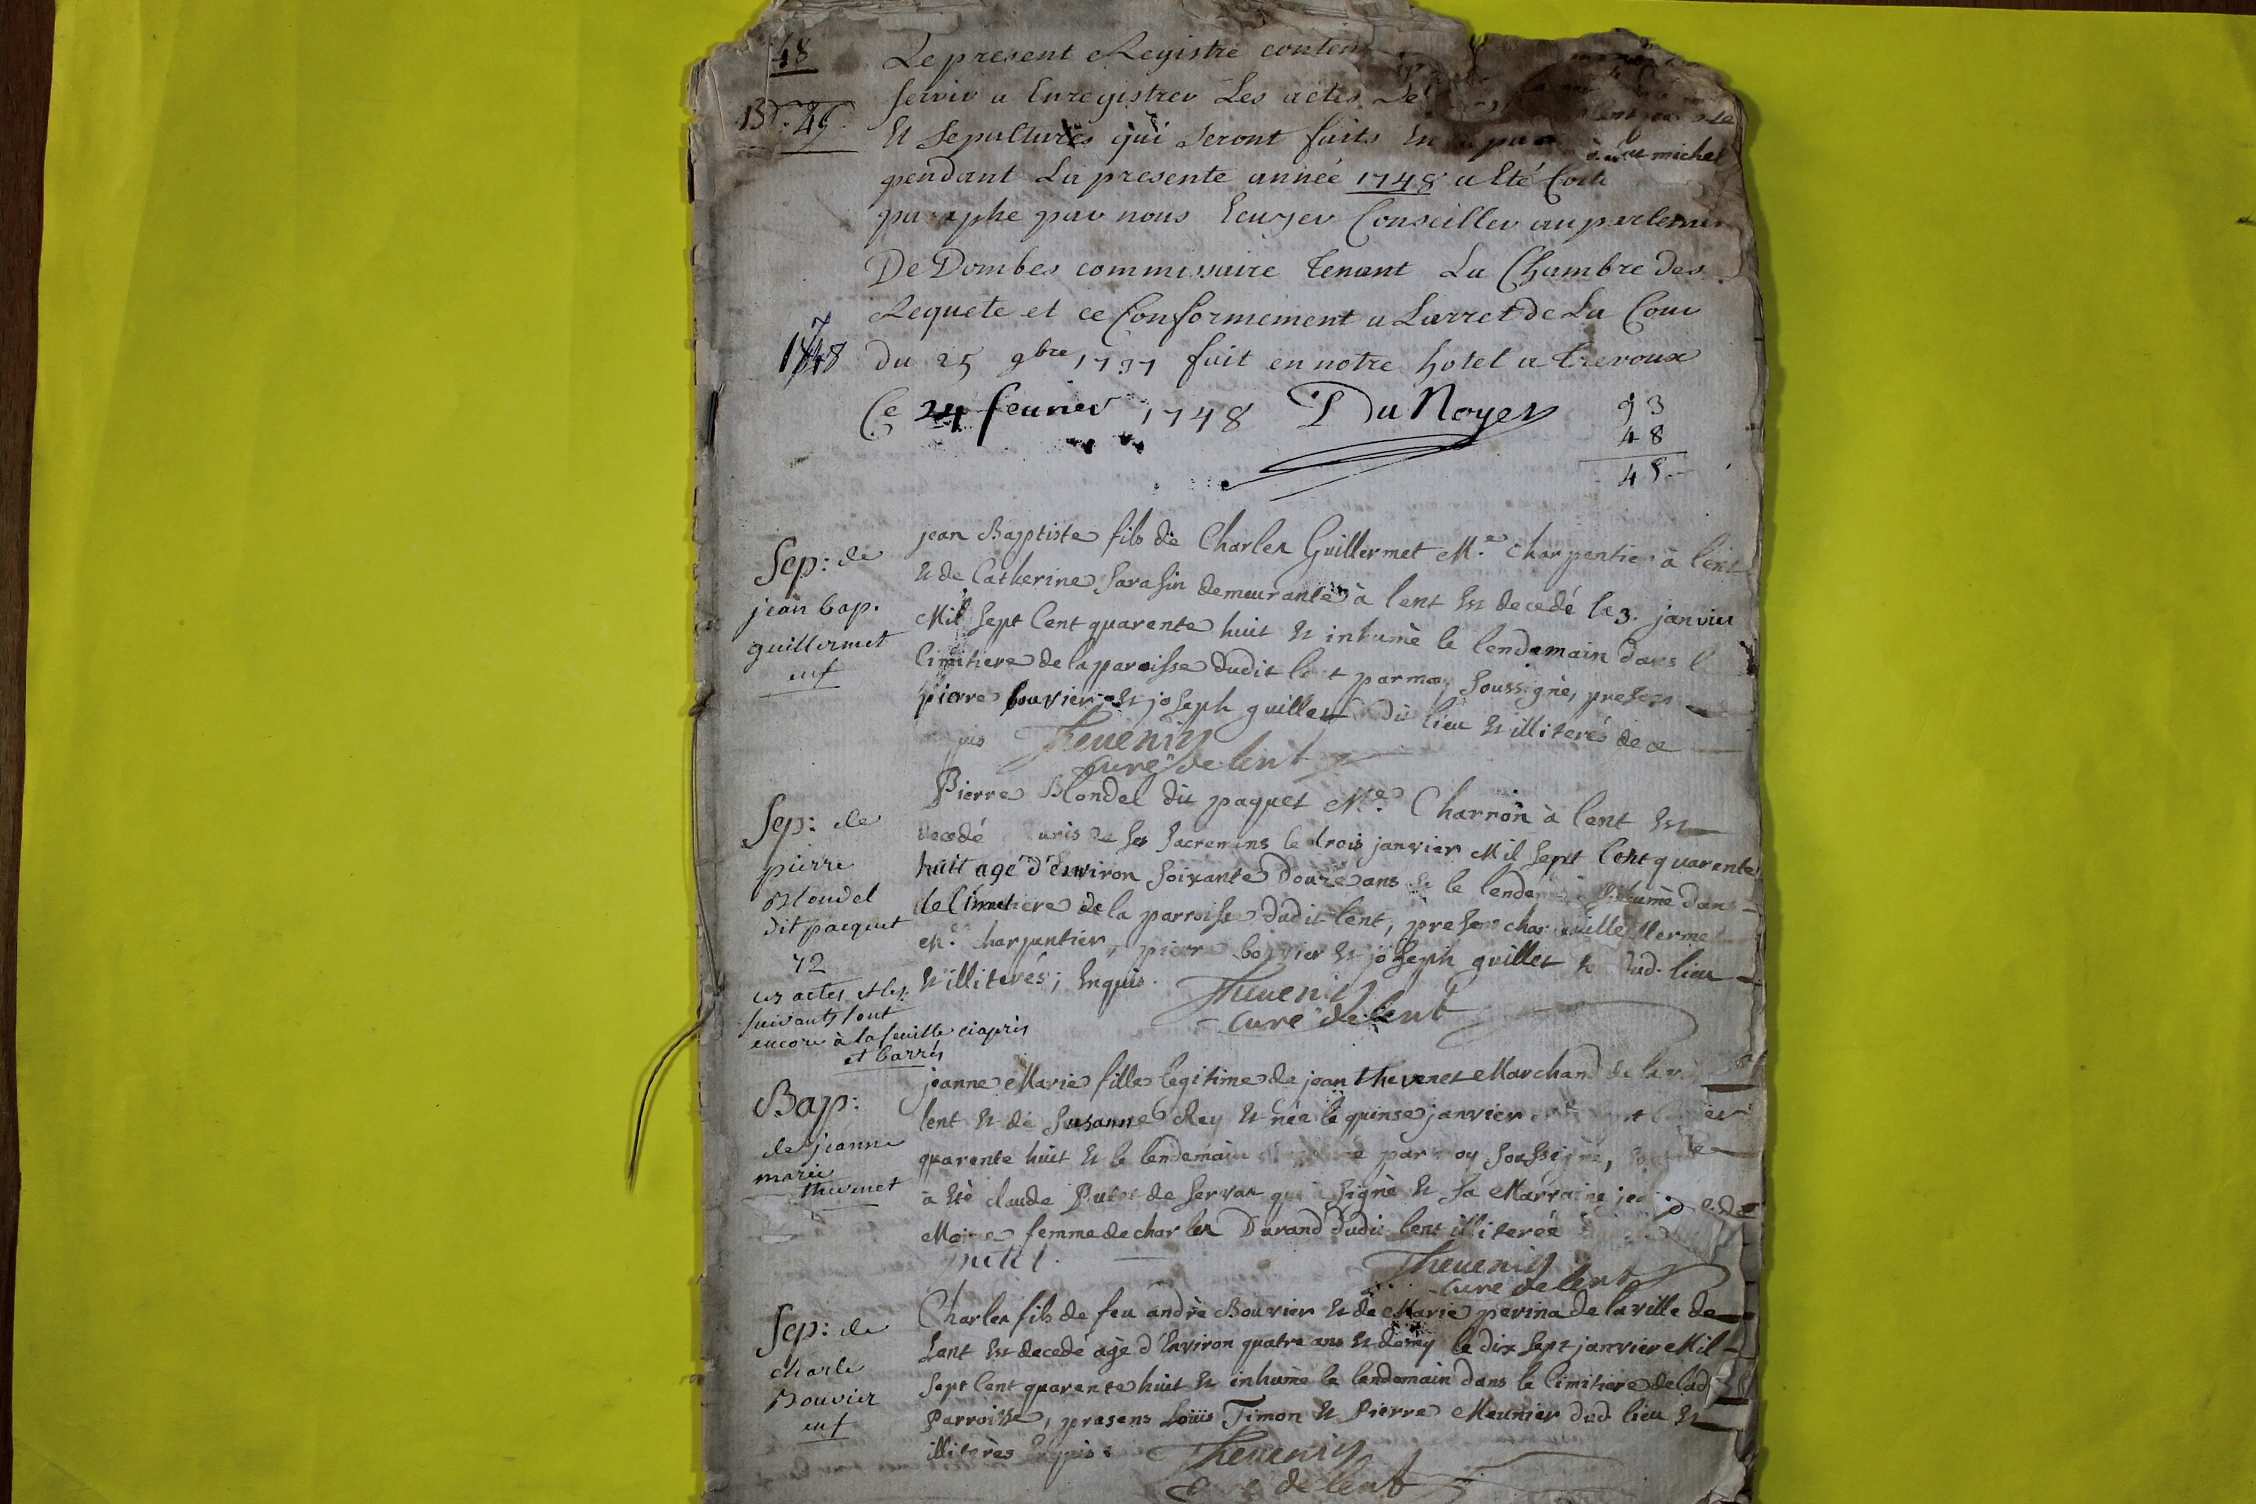 48
Le present Registre conten
servir a Enregistrer Les actes De
137. 45.
Et sepultures qui seront faits En
michel
pendant La presente année 1748 a Eté Cotté
paraphe par nous Ecuyer Conseiller au parlemen
De Dombes commissaire tenant La Chambre des
Requete et ce Conformement a Larret de La Cour
1748
du 25 9bre 1737 fait en notre hotel a trevoux
Ce 24 feurier 1748 DuNoyer
93
48
45
Sep: de
jean bap.
guillermet
enf
jean Baptiste fils de Charles Guillermet Me. charpentier à lent
Et de Catherine Sarasin demeurante à lent Est decedé le 3. janvier
Mil Sept Cent quarente huit Et inhumé le lendemain dans l
Cimitiere de la paroisse dudit lent par moy soussigné, presens
pierre bouvier Et joseph guillet du lieu Et illiterés de ce
quis Thevenin
curé de lent
Sep: de
pierre
Blondel
dit paquet
72
ces actes et les
suivants sont
encore à la feuille ciaprès
et barrés
Pierre Blondel dit paquet Me. Charron à lent Est
decedé munis de ses Sacremens le trois janvier Mil Sept Cent quarente
huit agé d'Environ soixante douze ans Et le lendemain inhumé dans
le Cimetiere de la parroisse dudit lent, presens guillermet
Me. charpentier, pierre bouvier Et joseph guillet dud. lieu
Et illiterés; Enquis. Thevenin
curé de lent
Bap:
de jeanne
marie
thevenet
jeanne Marie fille legitime de jean thevenet Marchand de la
lent Et de Susanne Rey Et née le quinse janvier
quarente huit Et le lendemain par moy soussigné,
à Eté claude Putet de Servas qui à signé Et sa Marraine
femme de charles Durand dudit lent illiterée
putet. Thevenin
curé de lent
Sep: de
charle
Bouvier
enf
Charles fils de feu andré Bouvier Et de Marie perina de la ville de
Lent Est decedé âgé d'Environ quatre ans Et demy le dix sept janvier Mil
Sept Cent quarente huit Et inhumé le lendemain dans le Cimitiere de lad
Parroisse, presens Loüis Timon Et Pierre Meunier dud. lieu Et
illiterés Enquis. Thevenin
curé de lent